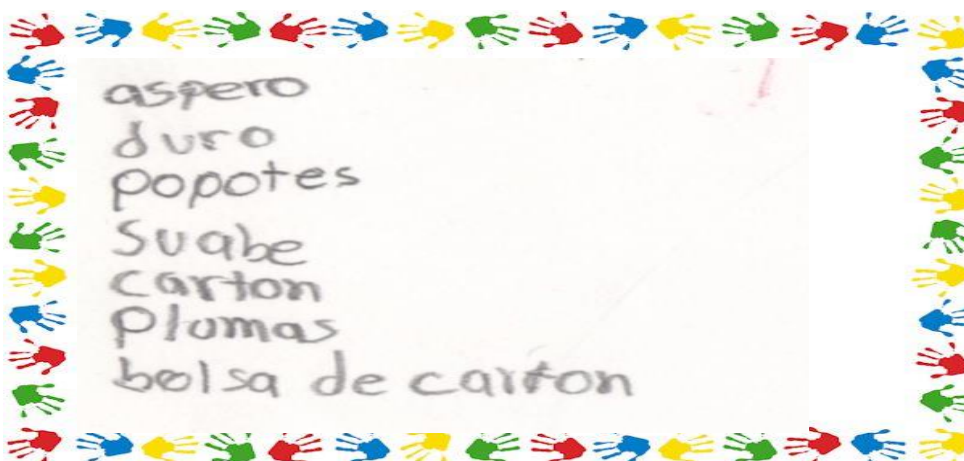 aspero
duro
popotes
Suabe
carton
Plumas
bolsa de carton